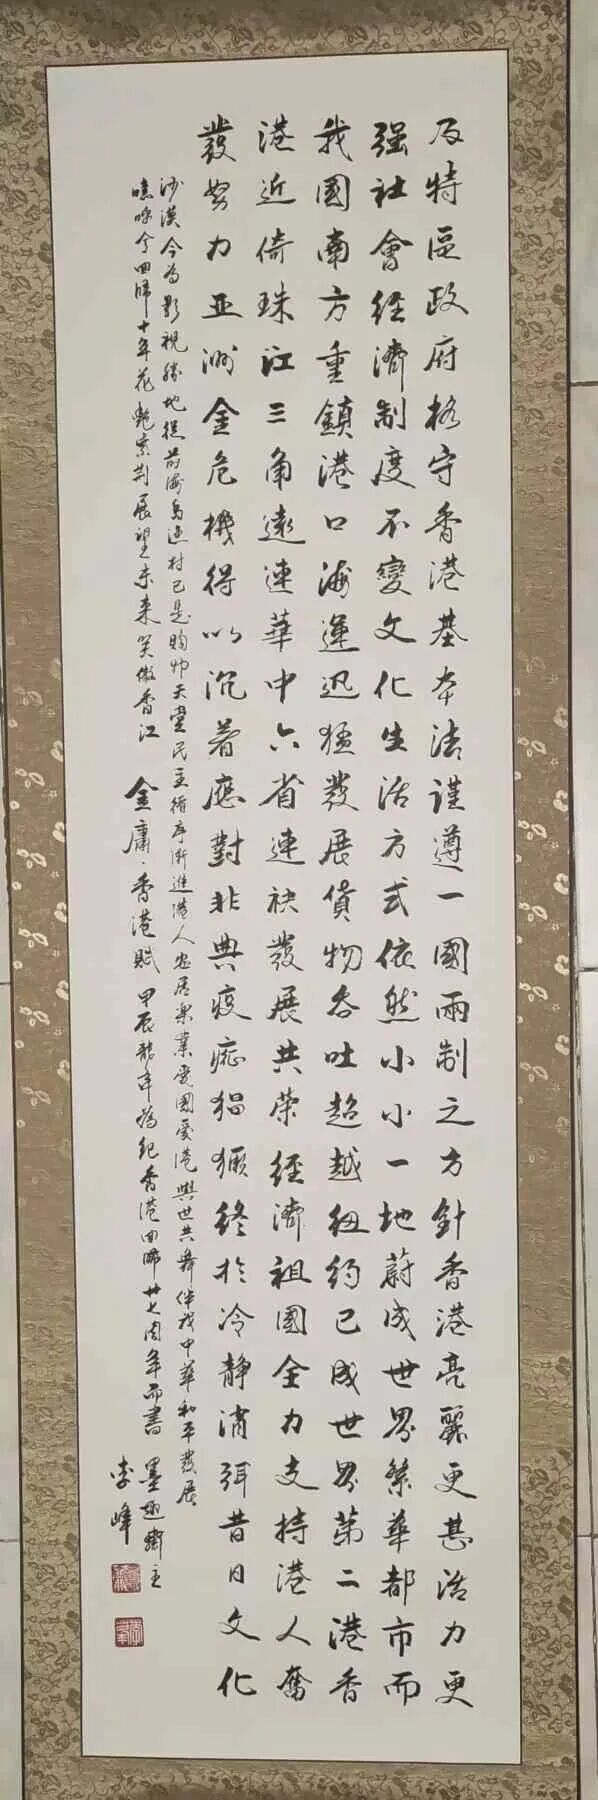 及特區政府格守香港基本法謹遵一國兩制之方針香港亮麗更甚活力更
强社會经濟制度不變文化生活方式依然小小一地蔚成世界繁華都市而
我國南方重鎮港口海運迅猛發展貨物吞吐超越纽約已成世界第二港香
港近倚珠江三角遠連華中六省連袂發展共荣经濟祖國全力支持港人奮
發努力亚洲金危機得以沉着應對非典疫症猖獗终於冷静消弭昔日文化
沙漠今为影視勝地從前海島漁村已是购物天堂民主循序渐進港人安居樂業爱國爱港與世共舞伴我中華和平發展
嘻嘻兮回歸十年花艷紫荆展望未来笑傲香江 金庸·香港賦 甲辰龍年為纪香港回歸廿七周年而書 墨趣齋主
李峰